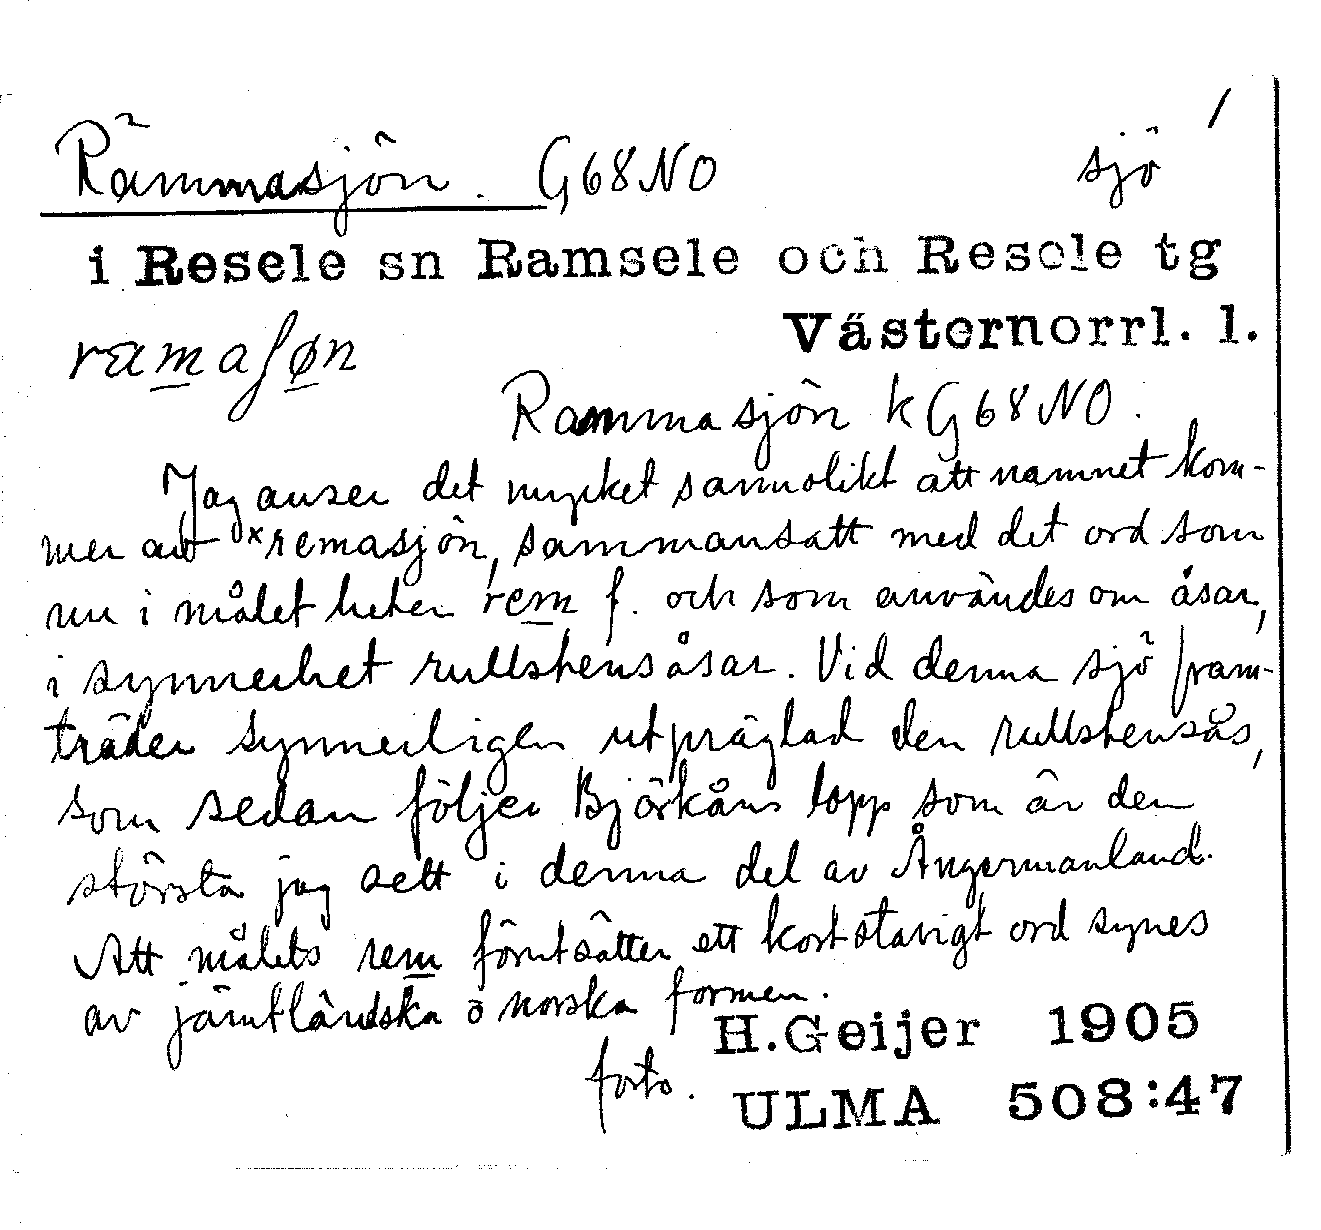 Rämmasjön. G68NO sjö /
i Resele sn Ramsele och Resele tg
Västernorrl. l.
ramaʃøn
Rammasjön k G68NO.
Jag anser det mycket sannolikt att namnet kom-
mer av ×remasjön, sammansatt med det ord som
nu i målet heter rem f. och som användes om åsar,
i synnerhet rullstensåsar. Vid denna sjö fram-
träder synnerligen utpräglad den rullstensås,
som sedan följer Björkåns lopp som är den
största jag sett i denna del av Ångermanland.
Att målets rem förutsätter ett kortstavigt ord synes
av jämtländska o norska formen.
H.Geijer 1905
foto.
ULMA 508:47